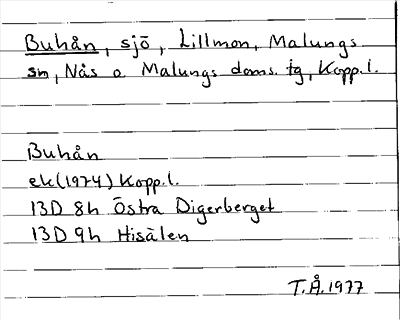 Buhån, sjö, Lillmon, Malungs
sn, Nås o Malungs doms. tg, Kopp.l.
Buhån
ek(1974) Kopp.l.
13D 8h Östra Digerberget
13D 9h Hisälen
T.Å.1977